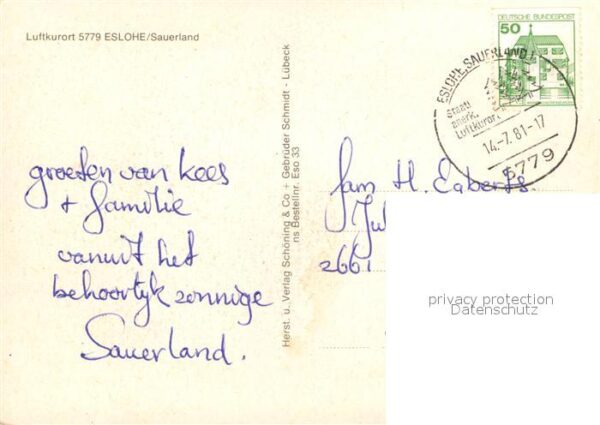 Luftkurort 5779 ESLOHE/Sauerland
groeten van Kees
+ familie
vanuit het
behoorlijk zonnige
Sauerland.
Herst. u. Verlag Schöning & Co + Gebrüder Schmidt - Lübeck
ns Bestellnr. Eso 33
DEUTSCHE BUNDESPOST
50
ESLOHE, SAUERLAND
Staatl.
anerk.
Luftkurort
14.-7.81-17
5779
fam H. Egberts.
2661
privacy protection
Datenschutz